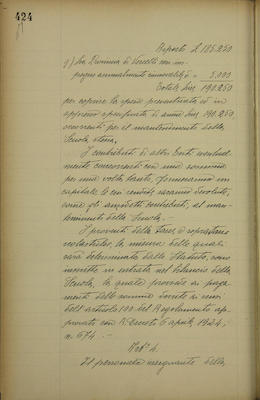 424
Riporto L. 185.250
g) La Provincia di Vercelli con im-
pegno annualmente rinnovabile " 5.000
Totale Lire 190.250
per coprire la spesa preventivata ed in
approvo di annue Lire 190.250
occorrenti per il mantenimento della
Scuola stessa.
I contributi di altri Enti eventual-
mente concorrenti con una somma
per una volta tanto, formeranno un
capitale le cui rendite saranno devolute,
come gli anzidetti contributi, al man-
tenimento della Scuola. -
I proventi delle tasse e soprattasse
scolastiche, la misura delle quali
sarà determinata dallo Statuto, sono
in entrata nel bilancio della
Scuola, la quale provvede ai paga-
menti delle somme dovute ai sensi
dell'articolo 100 del Regolamento ap-
provato con R. Decreto 6 aprile 1924,
n. 674. -
Art. 4.
Il personale insegnante della